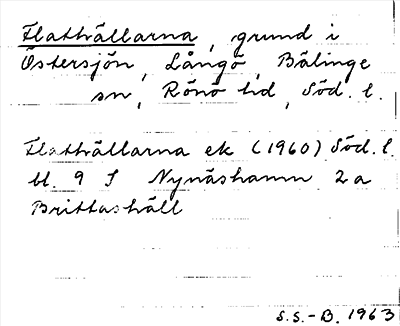 Flathällarna, grund i
Östersjön, Långö, Bälinge
sn, Rönö hd, Söd. l.
Flathällarna ek (1960) Söd. l.
bl. 9 I Nynäshamn 2a
Brittashäll
S.S.-B. 1963